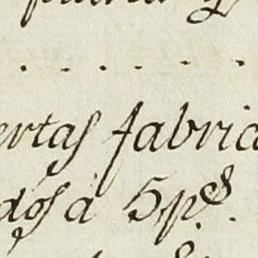 ertas fabric
dos á 5 p.s